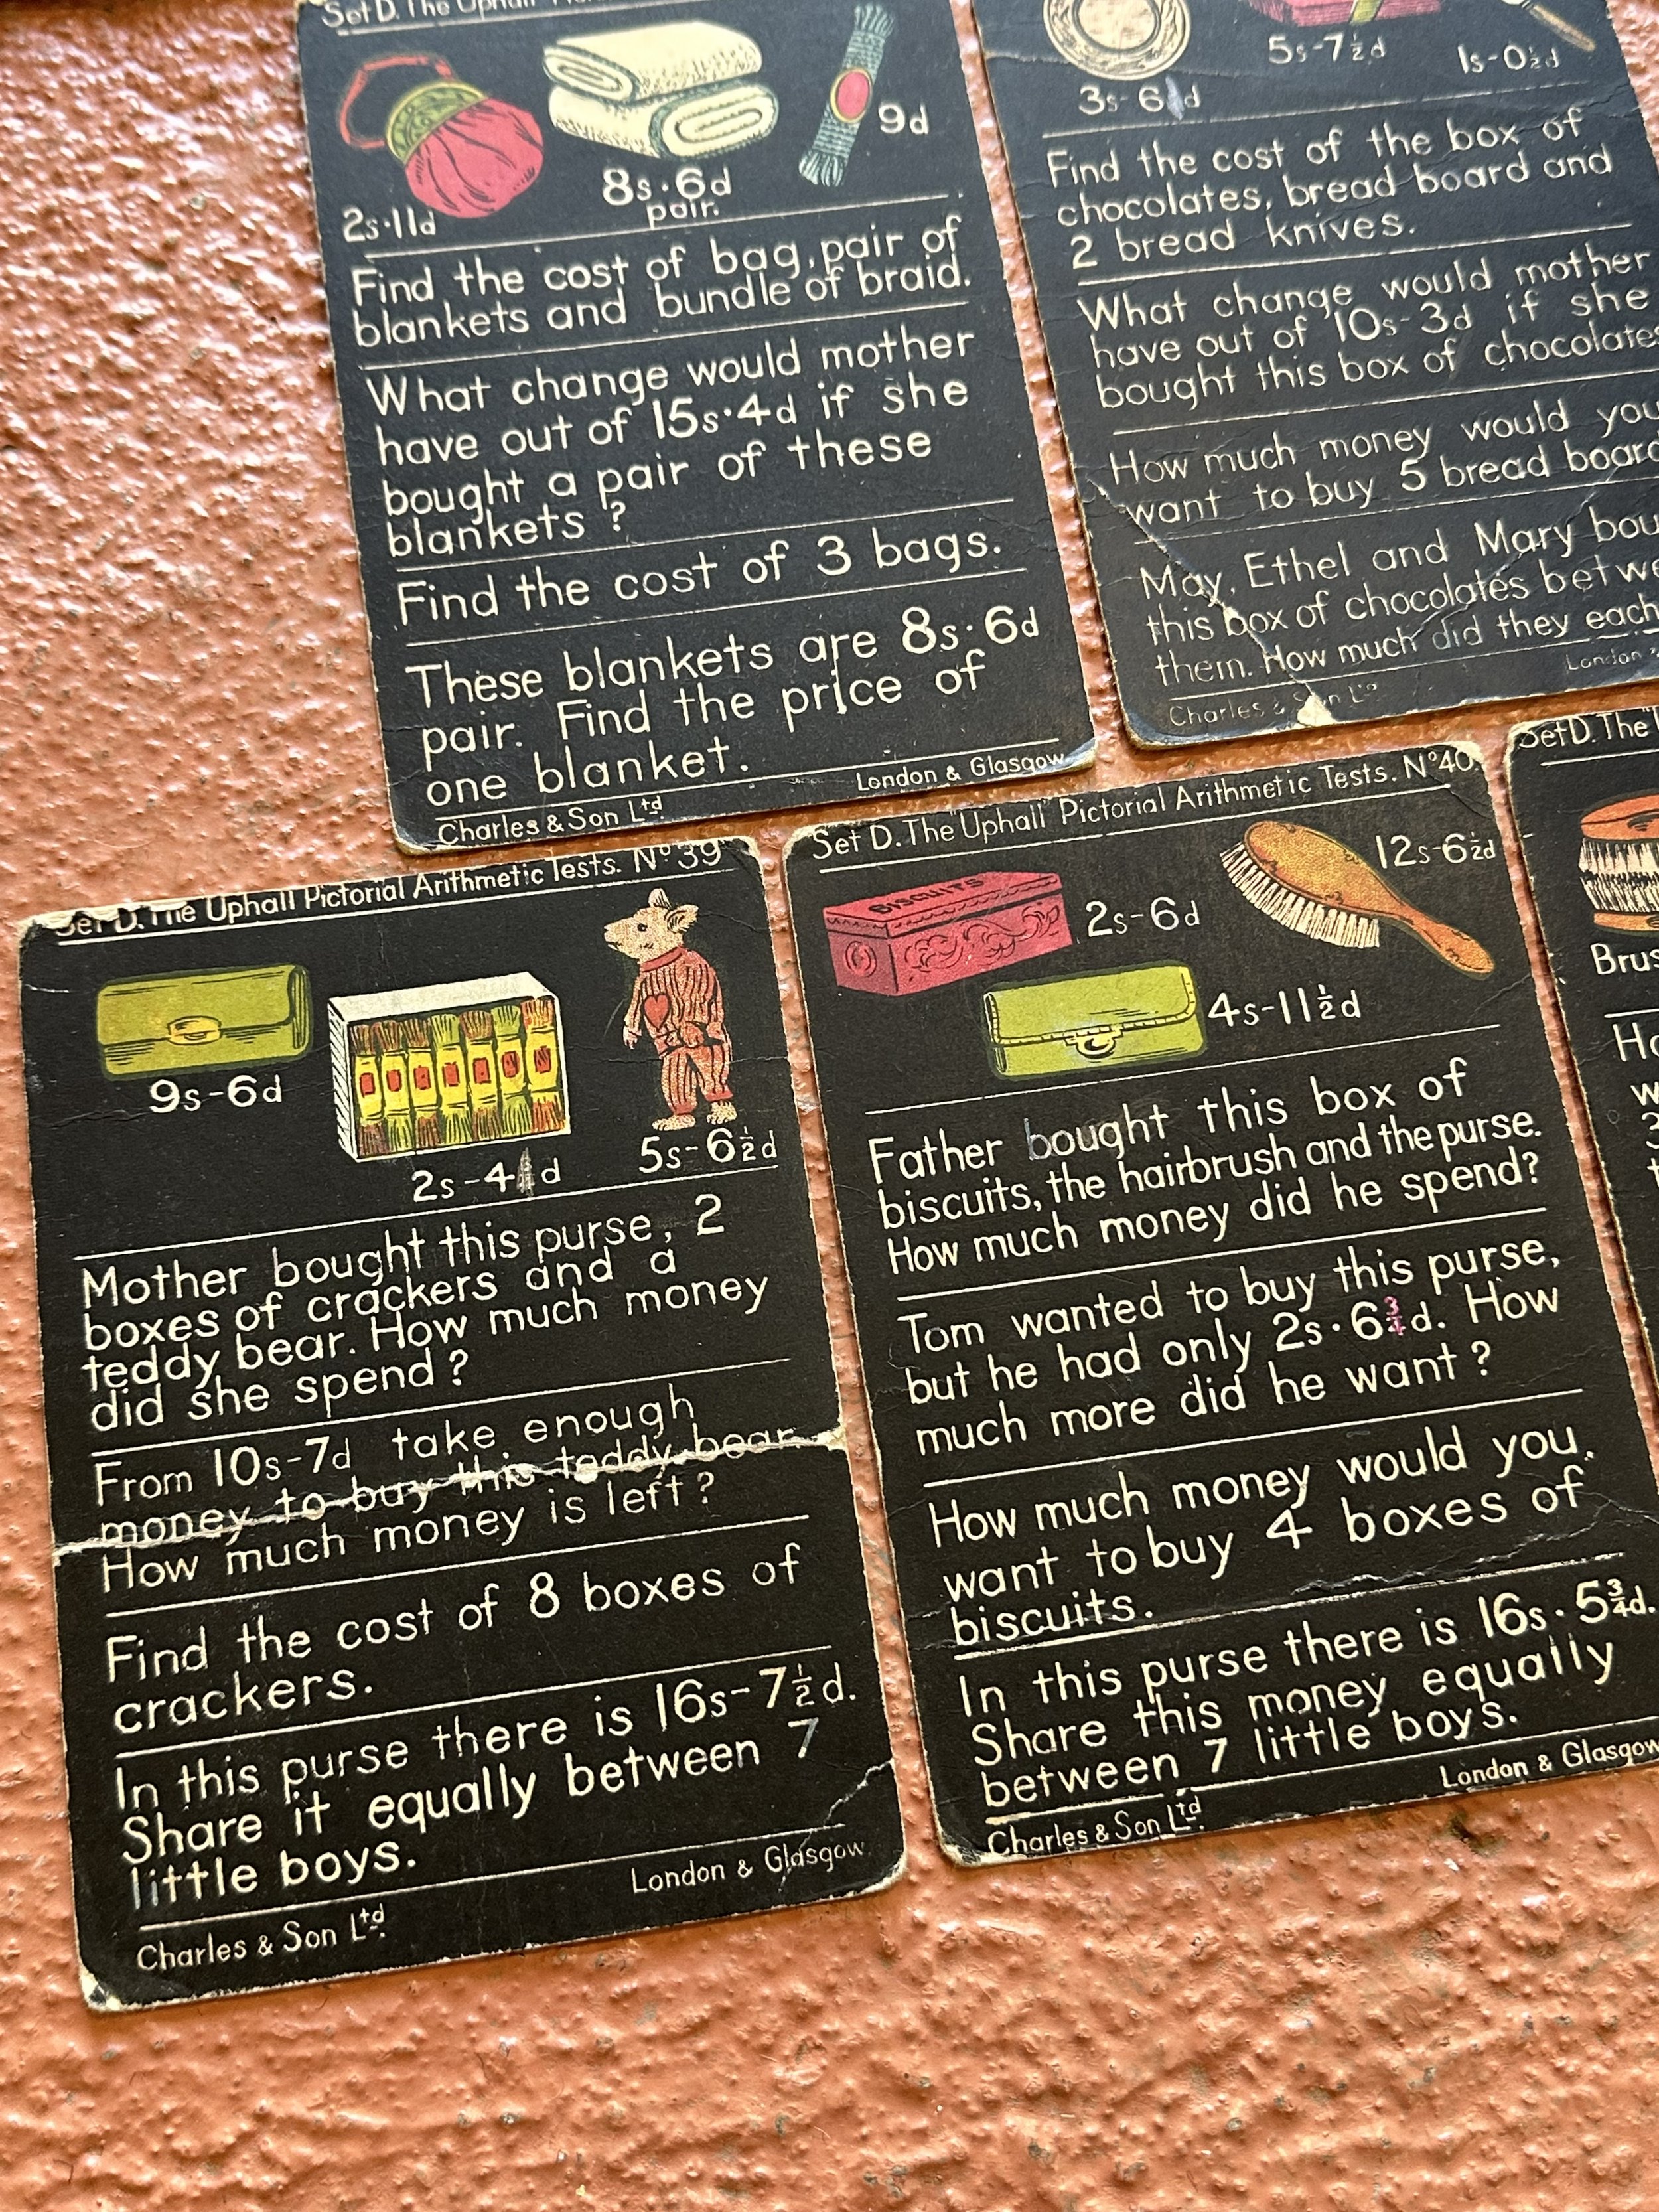 Set D. The Uphall
2s·11d
8s·6d
pair.
9d
Find the cost of bag, pair of
blankets and bundle of braid.
What change would mother
have out of 15s·4d if she
bought a pair of these
blankets ?
Find the cost of 3 bags.
These blankets are 8s·6d
pair. Find the price of
one blanket.
Charles & Son Ltd.
London & Glasgow
3s-6 d
5s-7½d
1s-0½d
Find the cost of the box of
chocolates, bread board and
2 bread knives.
What change would mother
have out of 10s-3d if she
bought this box of chocolates
How much money would you
want to buy 5 bread board
May, Ethel and Mary bou
this box of chocolates betwe
them. How much did they each
Charles & Son Ltd
London
Set D. The Uphall Pictorial Arithmetic Tests. Nº39
9s-6d
2s-4 d
5s-6½d
Mother bought this purse, 2
boxes of crackers and a
teddy bear. How much money
did she spend ?
From 10s-7d take enough
money to buy this teddy bear
How much money is left ?
Find the cost of 8 boxes of
crackers.
In this purse there is 16s-7½d.
Share it equally between 7
little boys.
Charles & Son Ltd.
London & Glasgow.
Set D. The "Uphall" Pictorial Arithmetic Tests. Nº40
BISCUITS
2s-6d
12s-6½d
4s-11½d
Father bought this box of
biscuits, the hairbrush and the purse.
How much money did he spend?
Tom wanted to buy this purse,
but he had only 2s·6¾d. How
much more did he want ?
How much money would you
want to buy 4 boxes of
biscuits.
In this purse there is 16s·5¾d.
Share this money equally
between 7 little boys.
Charles & Son Ltd.
London & Glasgow
Set D. The "
Brus
Ho
w
3
t